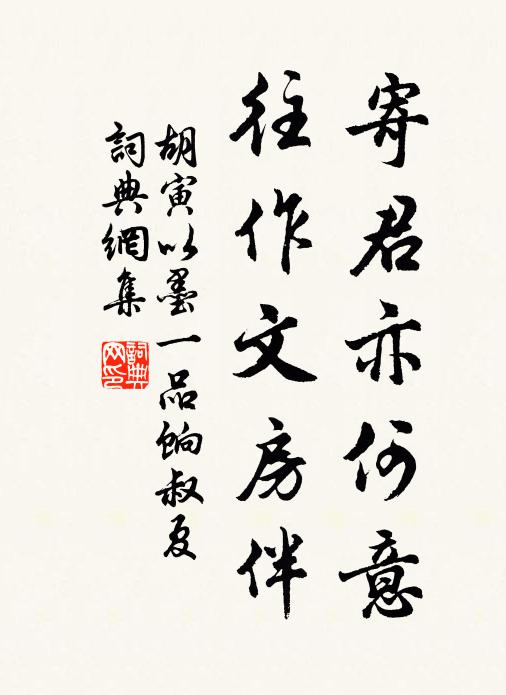 寄君亦何意
往作文房伴
胡寅以墨一品餉叔夏
詞典網集
詞典网印